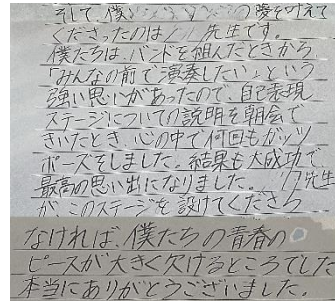 そして、僕の夢を叶えて
くださったのは 先生です。
僕たちは、バンドを組んだときから
「みんなの前で演奏したい」という
強い思いがあったので、自己表現
ステージについての説明を朝会で
きいたとき、心の中で何回もガッツ
ポーズをしました。結果も大成功で、
最高の思い出になりました。 先生
が、このステージを設けてくださら
なければ、僕たちの青春の
ピースが大きく欠けるところでした
本当にありがとうございました。